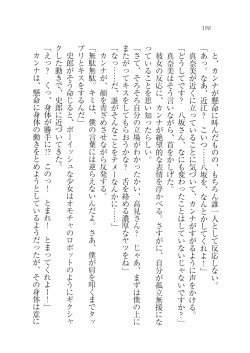 190
と、カンナが懸命に叫んだものの、もちろん誰一人として反応しない。
「あっ！ なあ、近江？ こいつ……八坂を、なんとかしてくれよー！」
真奈美が近くに立っていることに気づいて、カンナがすがるように声をかける。
「どうしてです？ 八坂さん、なにも変わったことはしていないじゃないですか？」
真奈美はそう言いながら、首をかしげた。
彼女の反応に、カンナが絶望的な表情を浮かべる。さすがに、自分が孤立無援になっていることを思い知ったらしい。
「さて、そろそろ自分の立場がわかったかい、高見さん？ じゃあ、まずは僕と、またがってキスをしてもらおうかな？ 舌を絡める濃厚なヤツをね」
「なっ……だ、誰がそんなことなをテメーなんかに……」
カンナが、顔を青ざめさせながら反発する。
「無駄無駄。キミは、僕の言葉には逆らえないんだよ。さあ、僕が肩を叩くまでタップリとキスをするんだ」
史郎がそう命じると、ボーイッシュな少女はオモチャのロボットのようにギクシャクした動きで、史郎に近づいてきた。
「えっ？ くっ、身体が勝手に!? このっ！ とまれ！ とまってくれよー！」
カンナは、懸命に身体の動きをとめようとしているようだったが、その身体は意に